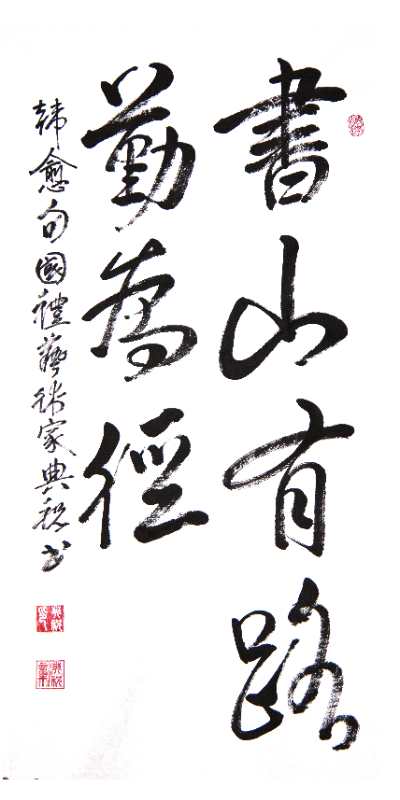 書山有路
勤為徑
韓愈句國禮藝術家典稅书